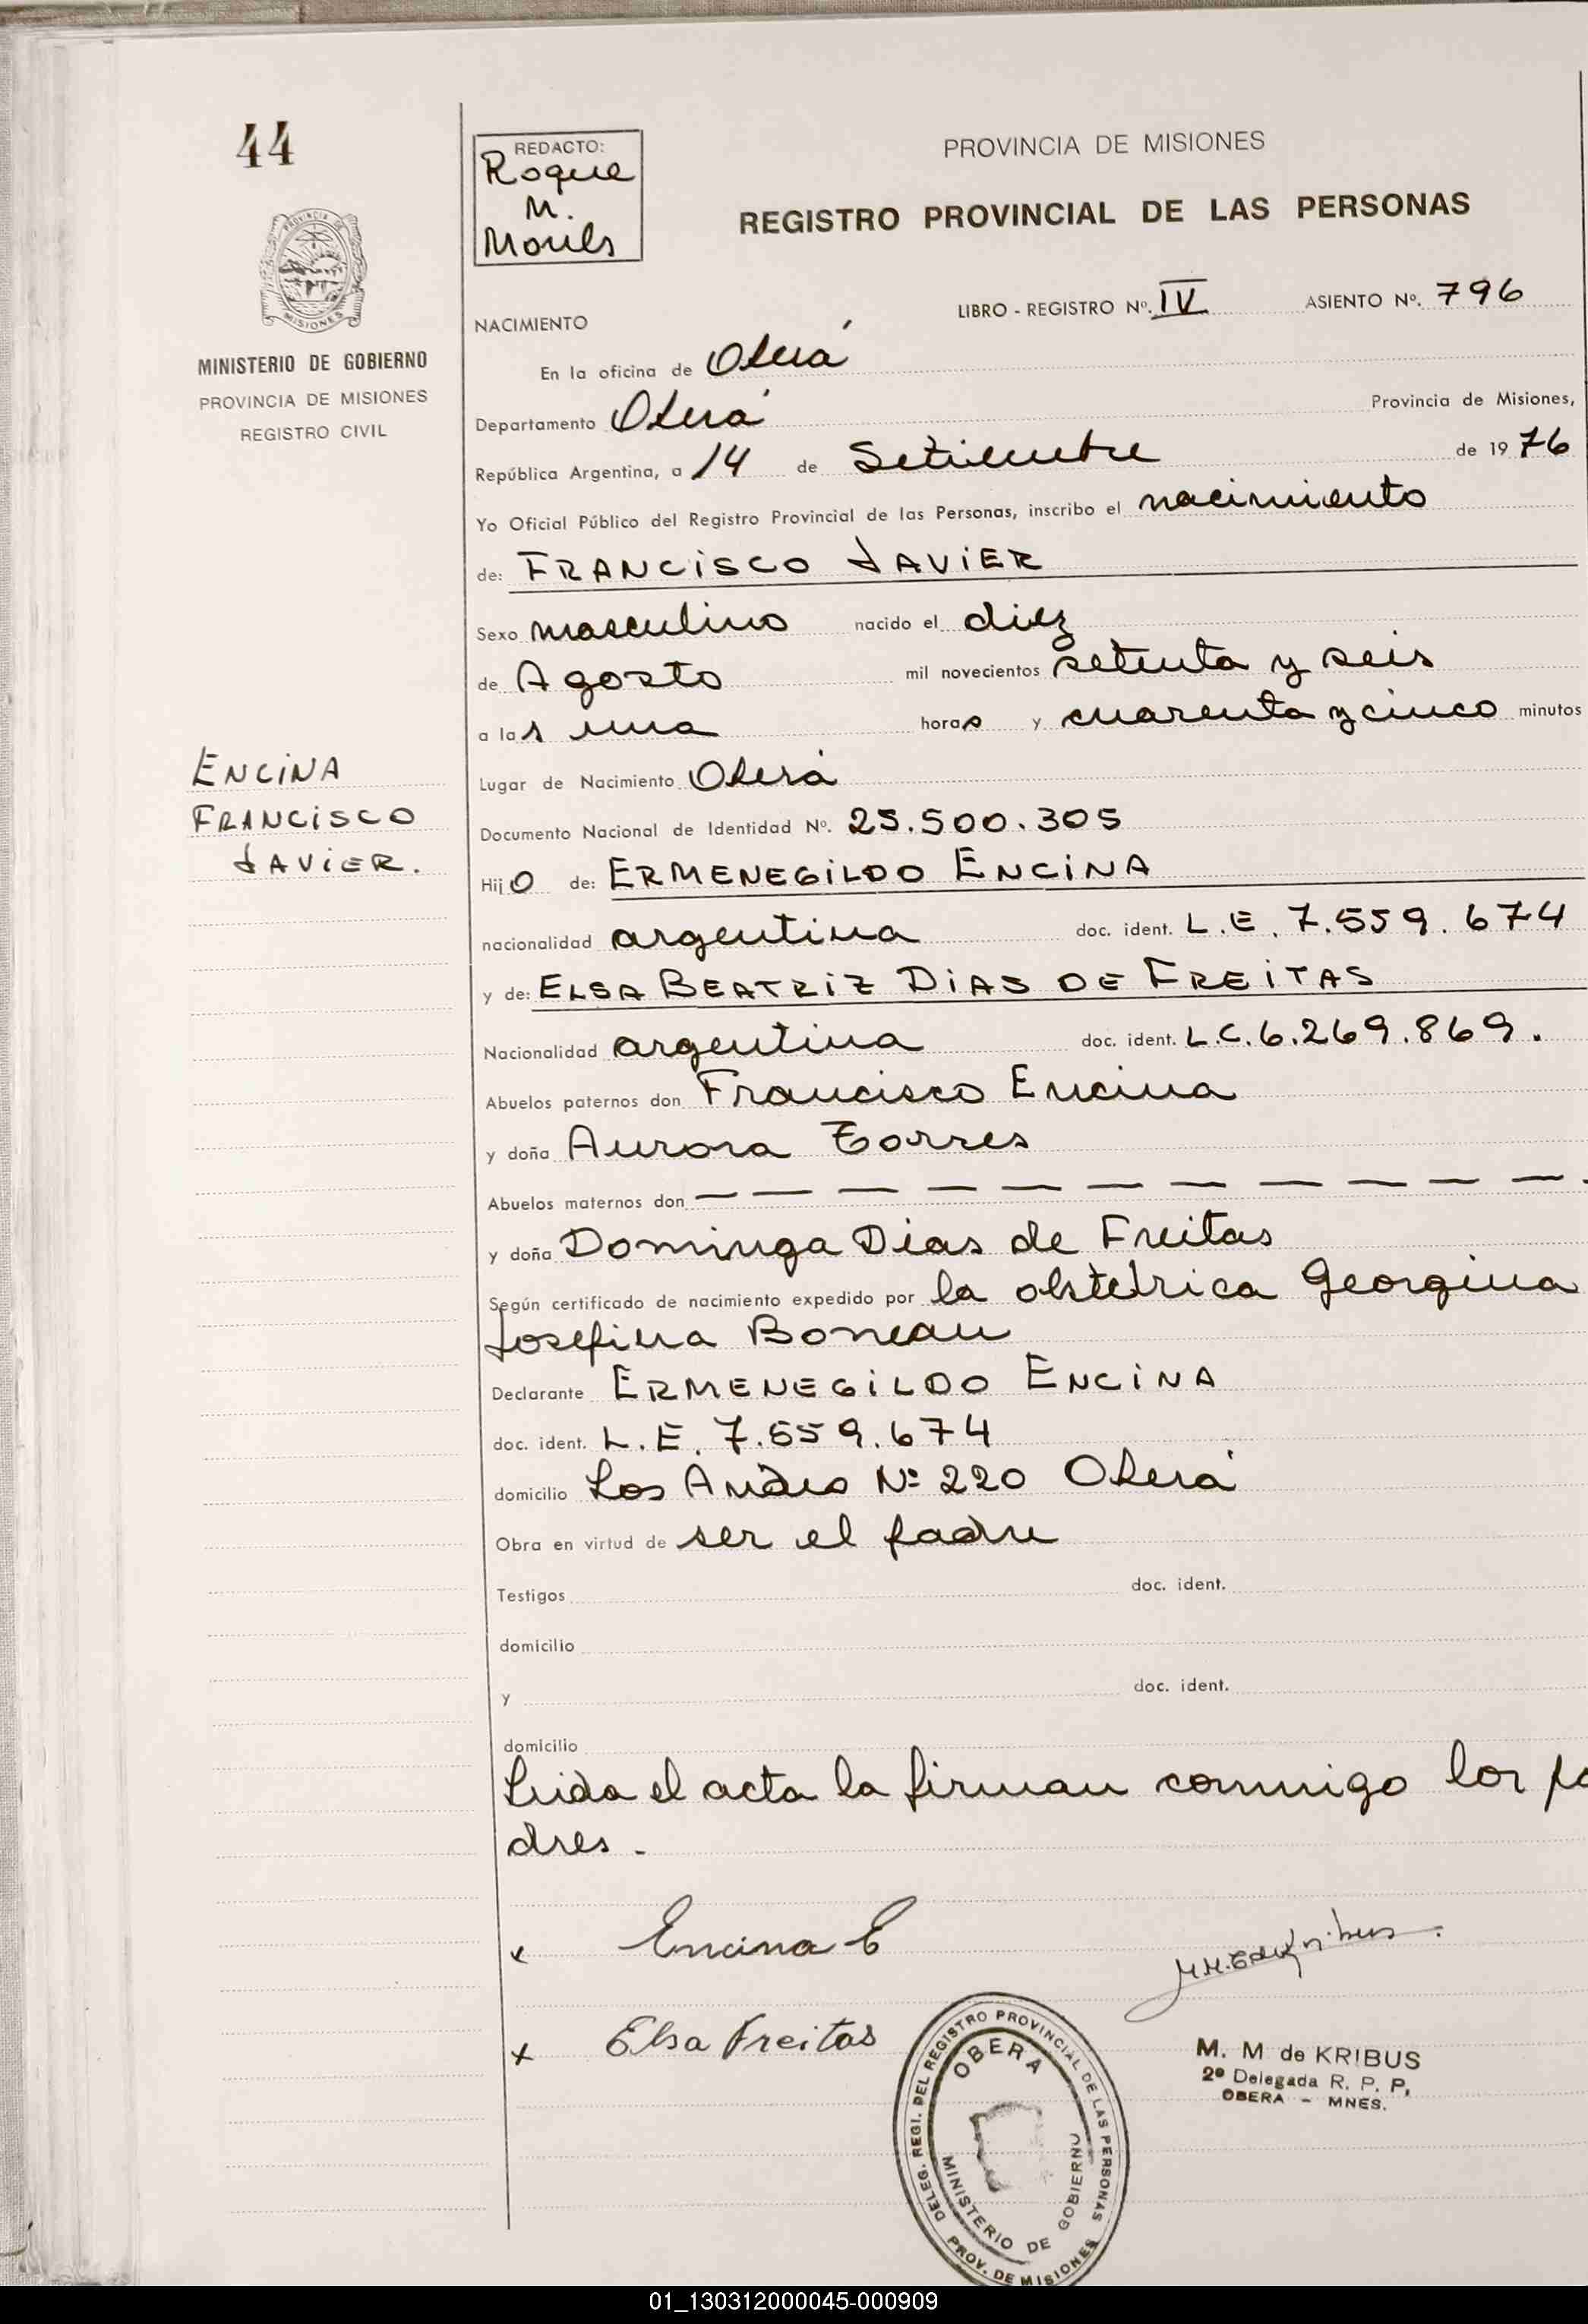 44
REDACTO:
Roque
M.
PROVINCIA DE MISIONES
REGISTRO PROVINCIAL DE LAS PERSONAS
PROVINCIA DE
MISIONES
MINISTERIO DE GOBIERNO
PROVINCIA DE MISIONES
REGISTRO CIVIL
LIBRO - REGISTRO Nº. IV ASIENTO Nº. 796
NACIMIENTO
En la oficina de Oberá
Departamento Oberá Provincia de Misiones,
República Argentina, a 14 de Setiembre de 1976
Yo Oficial Público del Registro Provincial de las Personas, inscribo el nacimiento
de: FRANCISCO JAVIER
Sexo masculino nacido el diez
de Agosto mil novecientos setenta y seis
a las una horas y cuarenta y cinco minutos
ENCINA
FRANCISCO
JAVIER.
Lugar de Nacimiento Oberá
Documento Nacional de Identidad Nº. 25.500.305
Hijo de: ERMENEGILDO ENCINA
nacionalidad argentina doc. ident. L.E. 7.559.674
y de: ELSA BEATRIZ DIAS DE FREITAS
Nacionalidad argentina doc. ident. L.C. 6.269.869.
Abuelos paternos don Francisco Encina
y doña Aurora Torres
Abuelos maternos don — — — — — — — — — — —
y doña Dominga Dias de Freitas
Según certificado de nacimiento expedido por la obstétrica Georgina
Josefina Boneau
Declarante ERMENEGILDO ENCINA
doc. ident. L.E. 7.559.674
domicilio Los Andes Nº 220 Oberá
Obra en virtud de ser el padre
Testigos doc. ident.
domicilio
y doc. ident.
domicilio
Leida el acta la firman conmigo los pa
dres.
x Encina E
x Elsa Freitas
M. M de KRIBUS
2º Delegada R. P. P.
OBERA - MNES.
DELEG. REGI. DEL REGISTRO PROVINCIAL DE LAS PERSONAS
OBERA
MINISTERIO DE GOBIERNO
PROV. DE MISIONES
01_130312000045-000909